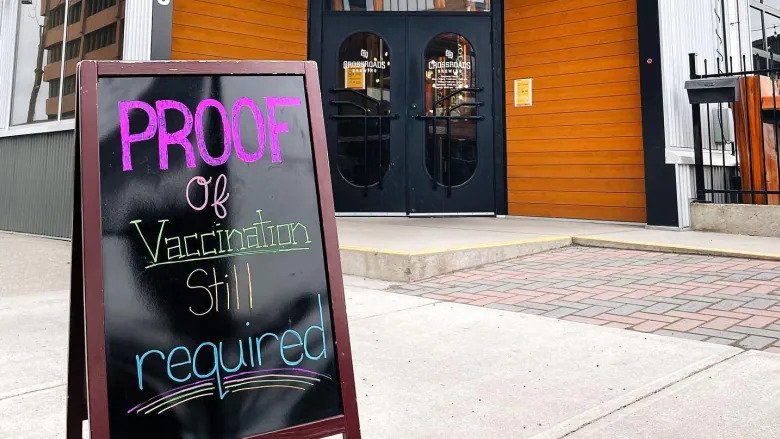 PROOF
Of
Vaccination
Still
required
CROSSROADS
BREWING
CROSSROADS
BREWING